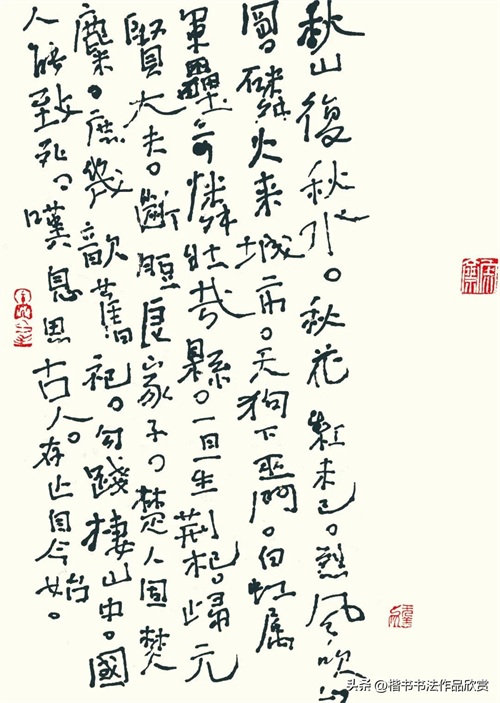 秋山復秋水。秋花紅未已。烈風吹山
岡磷火来城市。天狗下巫門。白虹屬
軍壘可憐壯哉縣。一旦生荊杞。歸元
賢大夫。斷脰良家子。楚人固焚
麇。庶幾歆舊祀。勾踐棲山中。國
人能致死。嘆息思古人。存亡自今始。
头条 @楷书书法作品欣赏